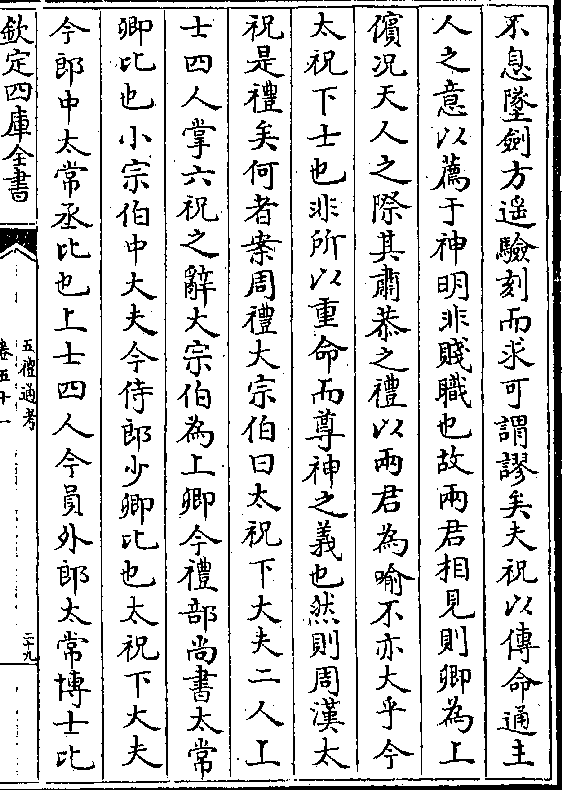 不息墜劍方遙驗刻而求可謂謬矣夫祝以傳命通主
人之意以薦于神明非賤職也故兩君相見則卿為上
儐況天人之際其肅恭之禮以兩君為喻不亦大乎今
太祝下士也非所以重命而尊神之義也然則周漢太
祝是禮矣何者案周禮大宗伯曰太祝下大夫二人上
士四人掌六祝之辭大宗伯為上卿今禮部尚書太常
卿比也小宗伯中大夫今侍郎少卿比也太祝下大夫
今郎中太常丞比也上士四人今員外郎太常博士比
欽定四庫全書
五禮通考
卷五十一
二十九